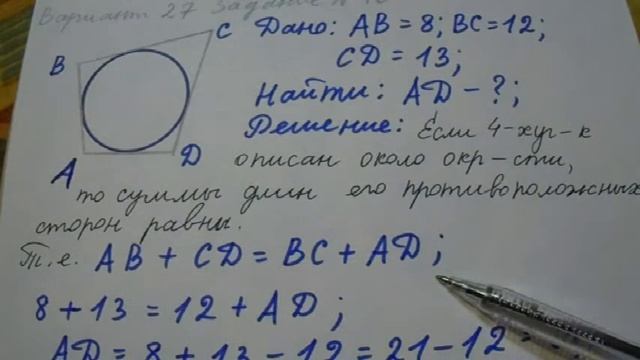 Вариант 27 Задание №
C Дано: AB = 8; BC = 12;
B CD = 13;
Найти: AD - ?;
Решение: Если 4-хуг-к
A D описан около окр-сти,
то суммы длин его противоположных
сторон равны.
Т.е. AB + CD = BC + AD;
8 + 13 = 12 + AD;
AD = 8 + 13 - 12 = 21 - 12 =